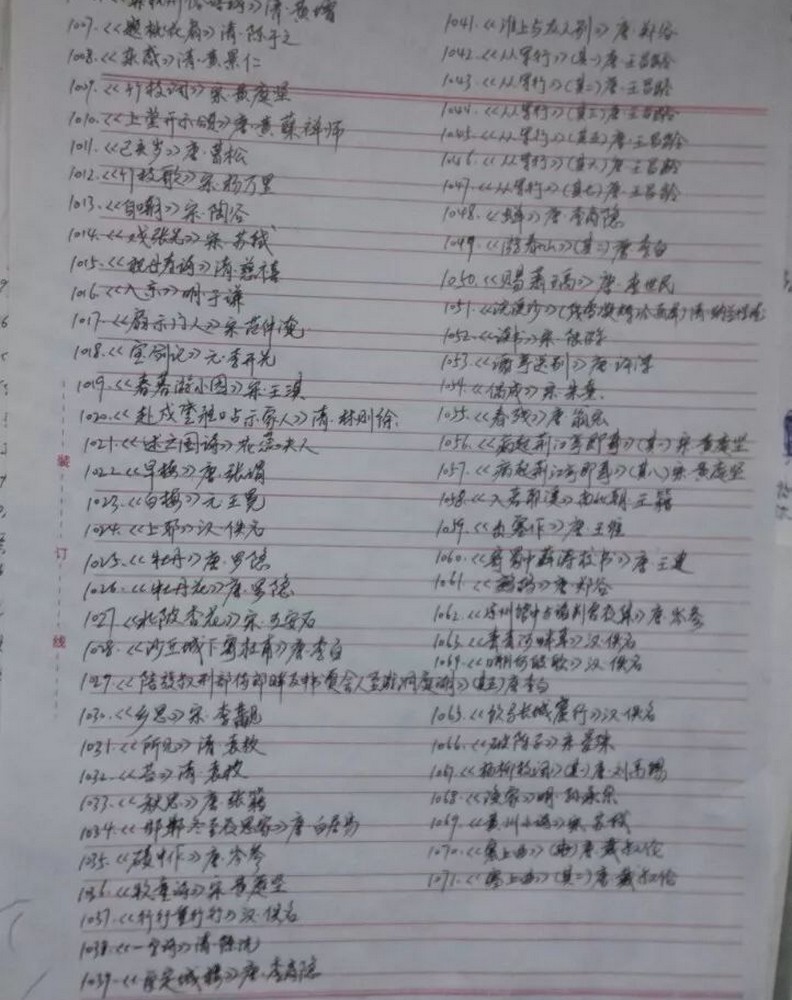 清·黄增
1007.《题桃花扇》清·陈于之
1008.《杂感》清·黄景仁
1009.《竹枝词》宋·黄庭坚
1010.《上堂开示颂》唐·黄蘖禅师
1011.《己亥岁》唐·曹松
1012.《竹枝歌》宋·杨万里
1013.《自嘲》宋·陶谷
1014.《戏张先》宋·苏轼
1015.《祝母寿诗》清·慈禧
1016.《入京》明·于谦
1017.《启示门人》宋·范仲淹
1018.《宝剑记》元·李开先
1019.《春暮游小园》宋·王淇
1020.《赴戍登程口占示家人》清·林则徐
1021.《述亡国诗》花蕊夫人
1022.《早梅》唐·张谓
1023.《白梅》元·王冕
1024.《上邪》汉·佚名
1025.《牡丹》唐·罗隐
1026.《牡丹花》唐·罗隐
1027.《北陂杏花》宋·王安石
1028.《沙丘城下寄杜甫》唐·李白
1029.《陪族叔刑部侍郎晔及中书贾舍人至游洞庭湖》(其五)唐·李白
1030.《乡思》宋·李觏
1031.《所见》清·袁枚
1032.《苔》清·袁枚
1033.《秋思》唐·张籍
1034.《邯郸冬至夜思家》唐·白居易
1035.《碛中作》唐·岑参
1036.《牧童诗》宋·黄庭坚
1037.《行行重行行》汉·佚名
1038.《一字诗》清·陈沆
1039.《安定城楼》唐·李商隐
1041.《淮上与友人别》唐·郑谷
1042.《从军行》(其一)唐·王昌龄
1043.《从军行》(其二)唐·王昌龄
1044.《从军行》(其三)唐·王昌龄
1045.《从军行》(其五)唐·王昌龄
1046.《从军行》(其六)唐·王昌龄
1047.《从军行》(其七)唐·王昌龄
1048.《蝉》唐·李商隐
1049.《游泰山》(其二)唐·李白
1050.《赐萧瑀》唐·李世民
1051.《浣溪沙》(残雪凝辉冷画屏)清·纳兰性德
1052.《读书》宋·陆游
1053.《谢亭送别》唐·许浑
1054.《偶成》宋·朱熹
1055.《春残》唐·翁宏
1056.《病起荆江亭即事》(其一)宋·黄庭坚
1057.《病起荆江亭即事》(其八)宋·黄庭坚
1058.《入若耶溪》南北朝·王籍
1059.《出塞作》唐·王维
1060.《寄蜀中薛涛校书》唐·王建
1061.《鹧鸪》唐·郑谷
1062.《凉州馆中与诸判官夜集》唐·岑参
1063.《青青河畔草》汉·佚名
1064.《明月何皎皎》汉·佚名
1065.《饮马长城窟行》汉·佚名
1066.《破阵子》宋·晏殊
1067.《杨柳枝词》(其一)唐·刘禹锡
1068.《渔家》明·孙承宗
1069.《黄州小诗》宋·苏轼
1070.《塞上曲》唐·戴叔伦
1071.《塞上曲》(其二)唐·戴叔伦
装
订
线